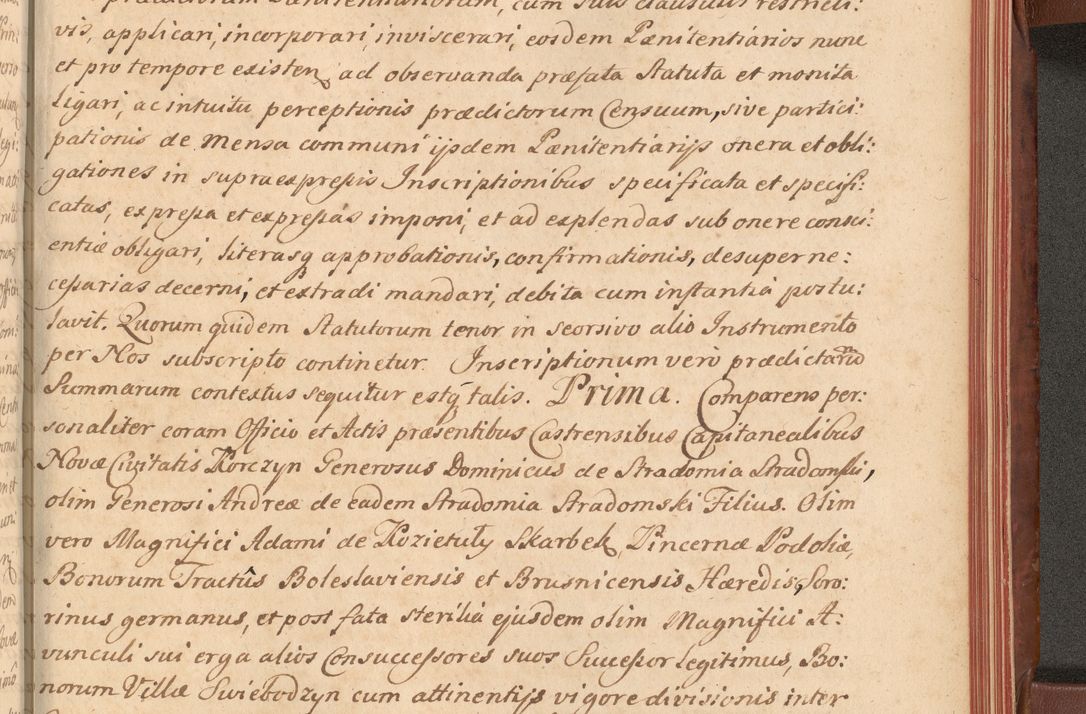 prædictorum Pænitentiariorum, cum suis clausulis restricti:
vis, applicari, incorporari, inviscerari, eosdem Pænitentiarios nunc
et pro tempore existen, ad observanda præfata Statuta et monita
ligari, ac intuitu perceptionis prædictorum Censuum, sive partici:
pationis de Mensa communi ijsdem Pænitentiarijs onera et obli:
gationes in supraexpressis Inscriptionibus specificata et specifi:
catas, expressa et expressas imponi, et ad explendas sub onere consci:
entiæ obligari, literasq approbationis, confirmationis, desuper ne:
cessarias decerni, et extradi mandari, debita cum instantia postu:
lavit. Quorum quidem Statutorum tenor in seorsivo alio Instrumento
per Nos subscripto continetur. Inscriptionum verò prædictarum
Summarum contextus sequitur estq talis. Prima. Comparens per:
sonaliter coram Officio et Actis præsentibus Castrensibus Capitanealibus
Novæ Civitatis Korczyn Generosus Dominicus de Stradomia Stradomski,
olim Generosi Andreæ de eadem Stradomia Stradomski Filius. Olim
vero Magnifici Adami de Kozietuły Skarbek, Pincernæ Podoliæ,
Bonorum Tractûs Boleslaviensis et Brusnicensis Hæredis, Soro:
rinus germanus, et post fata sterilia ejusdem olim Magnifici A:
vunculi sui erga alios Consuccessores suos Successor legitimus, Bo:
norum Villæ Swiebodzyn cum attinentijs vigore divisionis inter